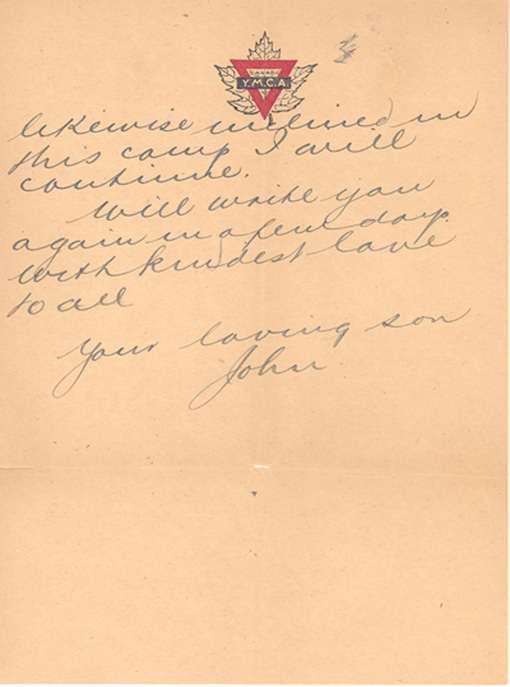 3
CANADA
Y.M.C.A.
likewise inclined in
this camp I will
continue.
Will write you
again in a few days.
With kindest love
to all
Your loving son
John